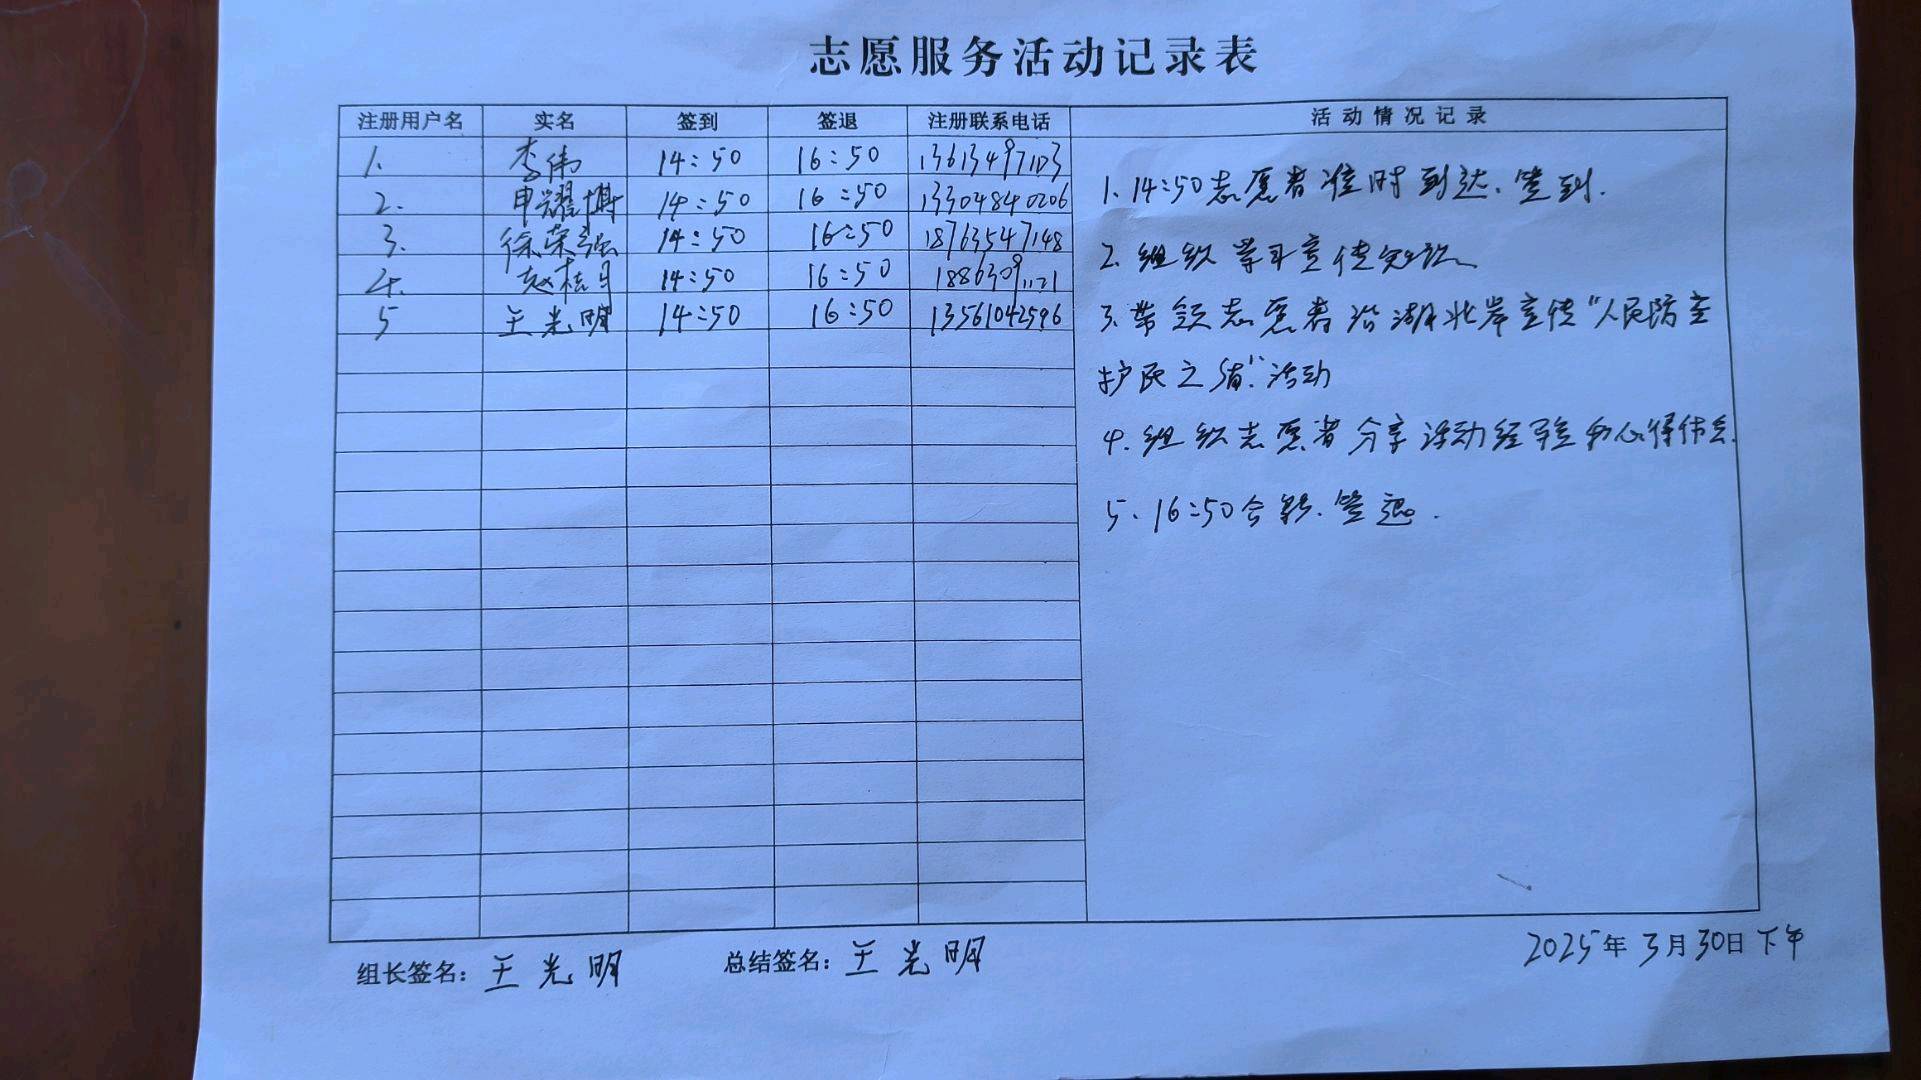 志愿服务活动记录表
注册用户名 实名 签到 签退 注册联系电话 活动情况记录
1. 李伟 14:50 16:50 13613497103
2. 申耀博 14:50 16:50 13304840206
3. 徐荣强 14:50 16:50 18763547148
4. 赵桂月 14:50 16:50 18863091121
5 王光明 14:50 16:50 13561042596
1. 14:50志愿者准时到达、签到.
2. 组织学习宣传知识、
3. 带领志愿者沿湖北岸宣传“人民防空
护民之盾”活动
4. 组织志愿者分享活动经验和心得体会.
5、16:50合影、签退.
组长签名: 王光明 总结签名: 王光明 2025年3月30日下午